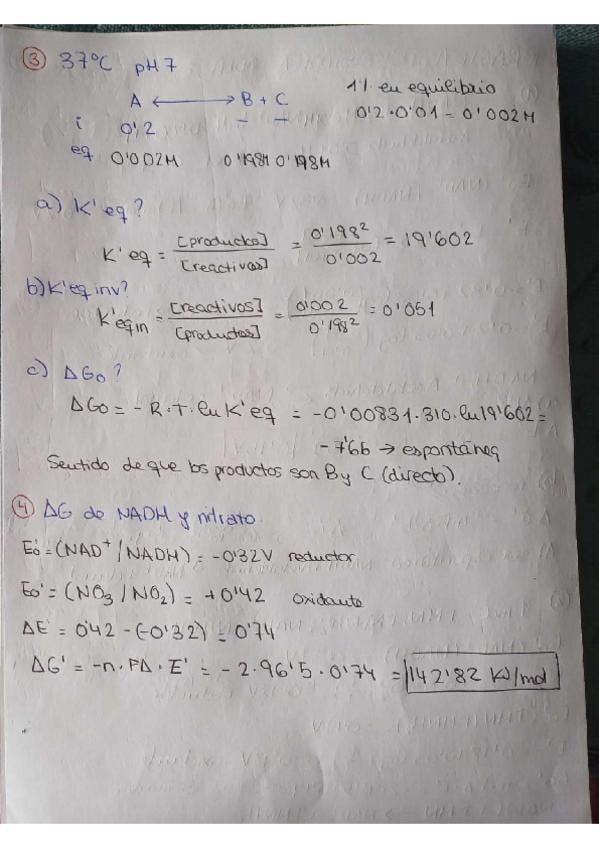 ③ 37ºC pH 7
1% en equilibrio
A ⟷ B + C
0'2 · 0'01 = 0'002M
i 0'2 − −
eq 0'002M 0'198M 0'198M
a) K'eq?
K'eq = [productos]/[reactivos] = 0'198²/0'002 = 19'602
b) K'eq inv?
K'eq in = [reactivos]/[productos] = 0'002/0'198² = 0'051
c) ΔG0?
ΔG0 = - R · T · ln K'eq = -0'00831 · 310 · ln 19'602 =
- 7'66 → espontánea
Sentido de que los productos son B y C (directo).
④ ΔG de NADH y nitrato.
Eo' = (NAD⁺/NADH) = -0'32V reductor
Eo' = (NO3/NO2) = +0'42 oxidante
ΔE' = 0'42 - (-0'32) = 0'74
ΔG' = -n · FΔ · E' = - 2 · 96'5 · 0'74 = 142'82 KJ/mol